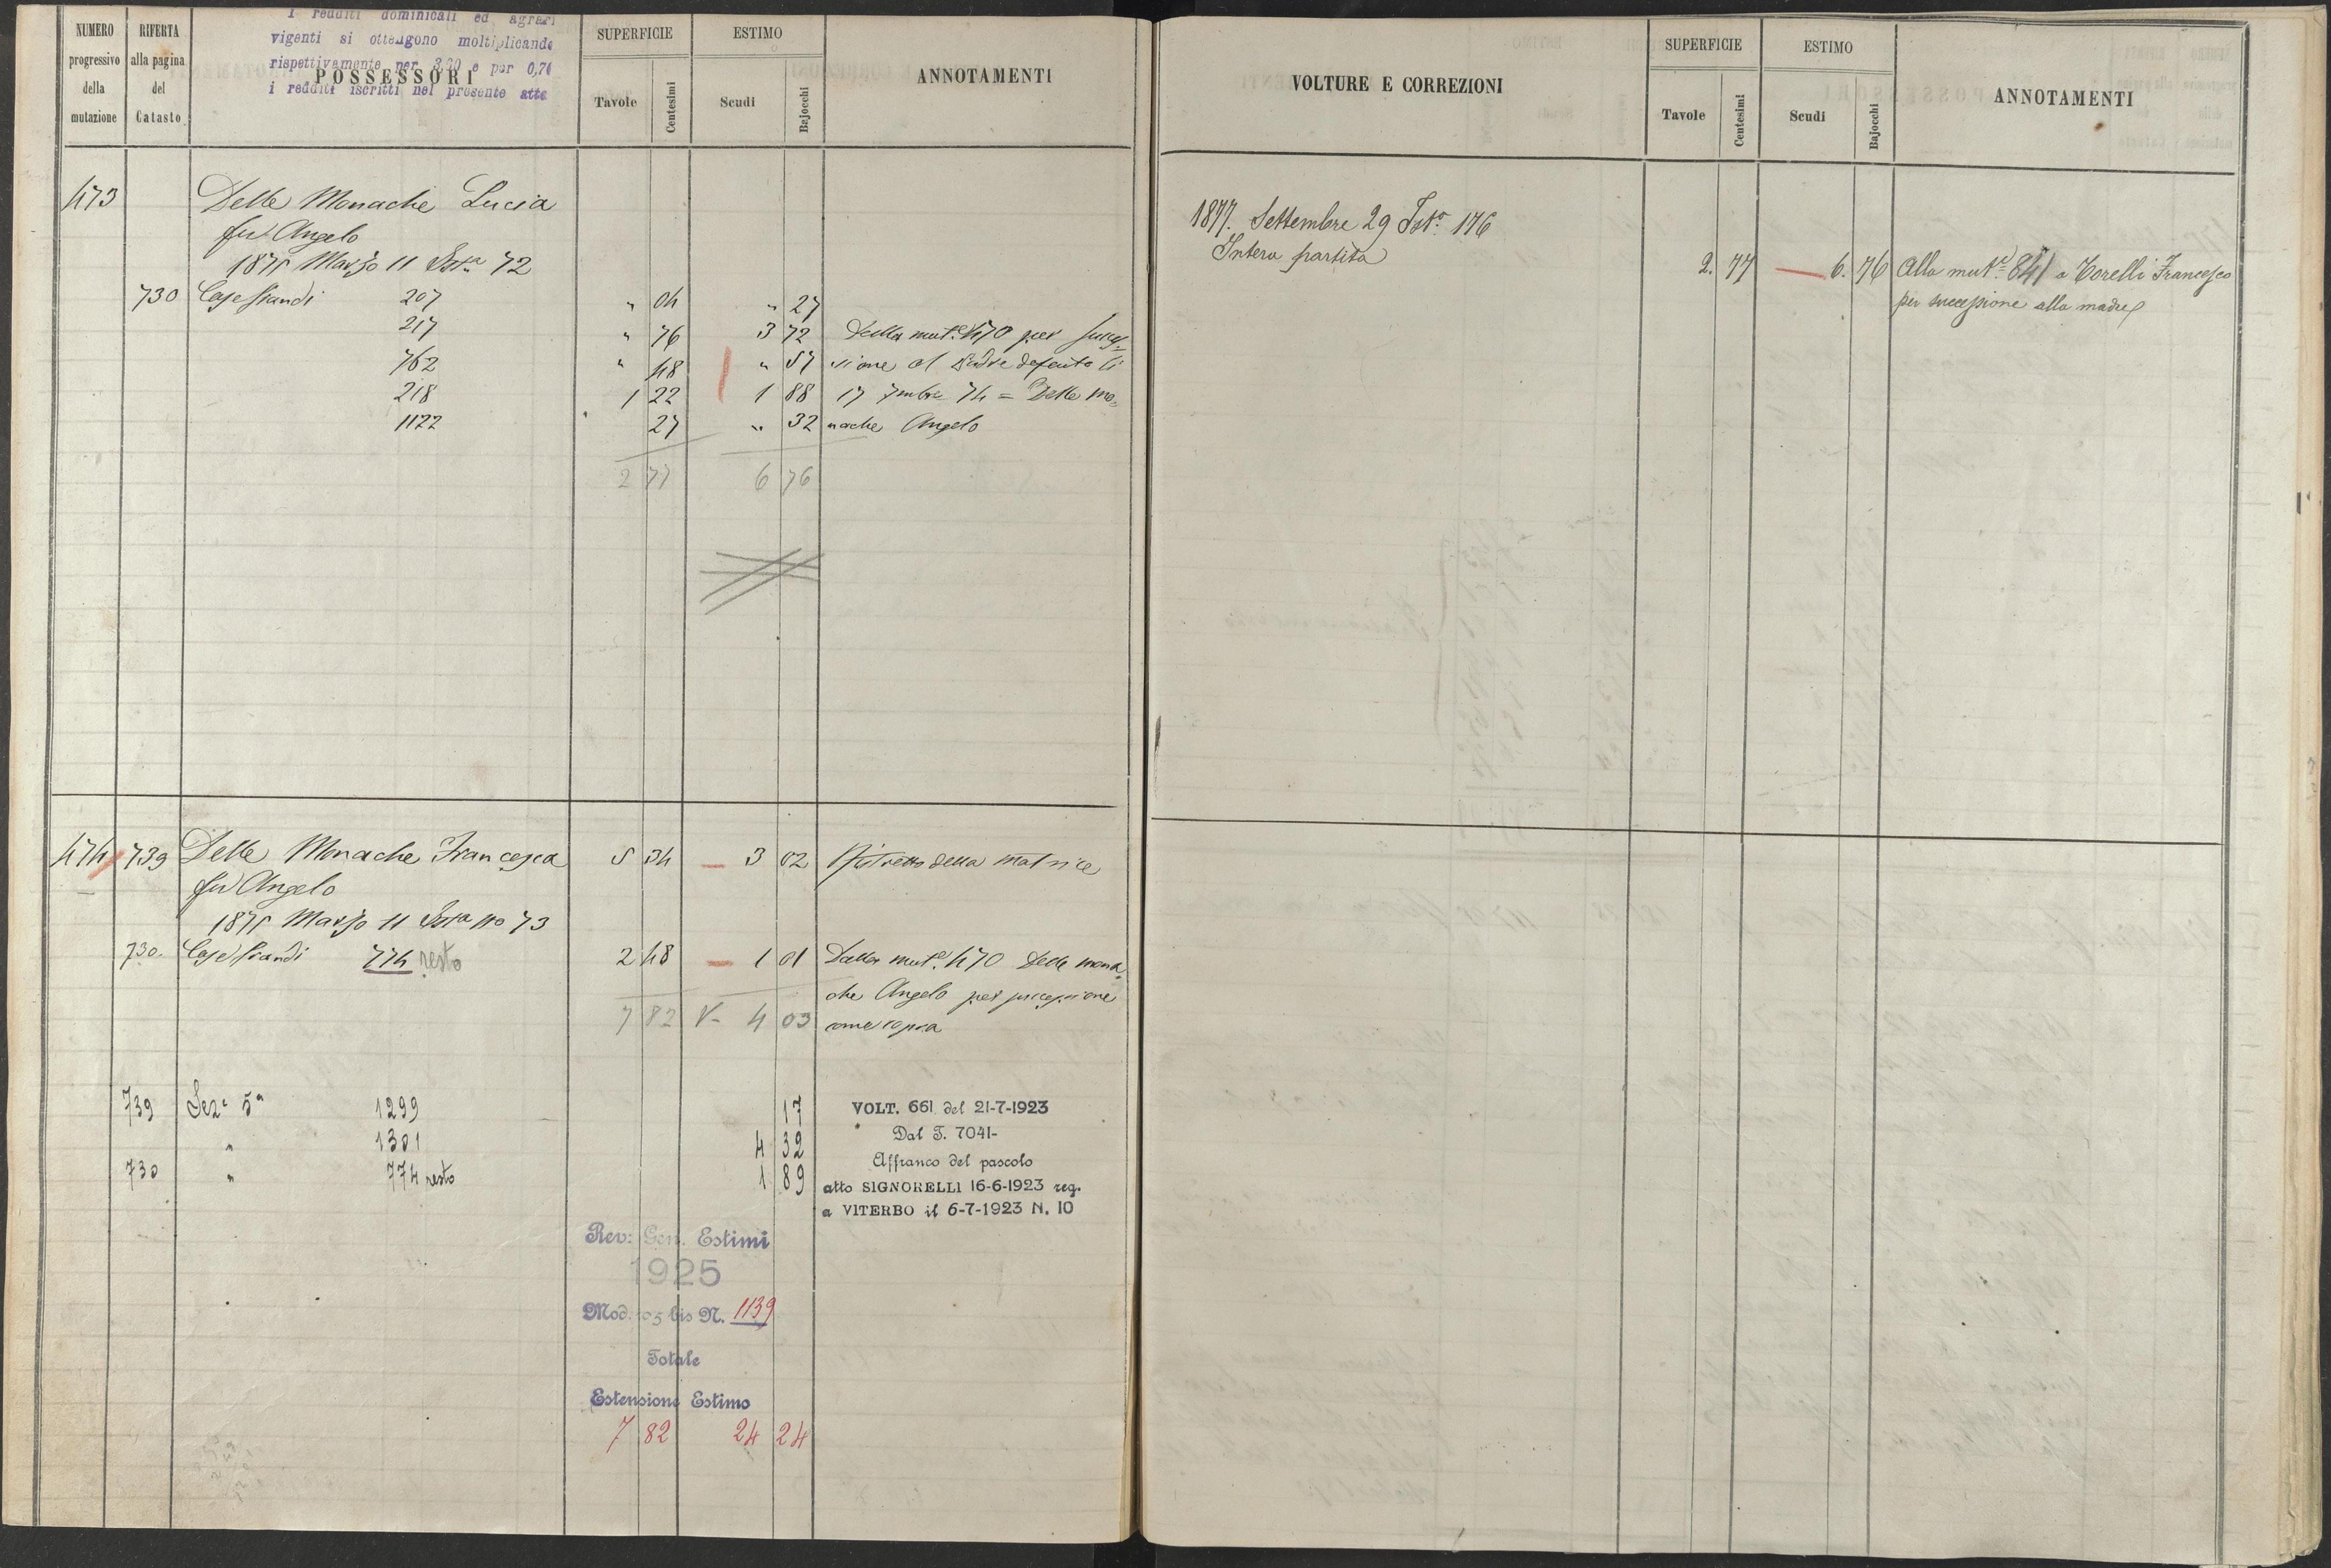 NUMERO progressivo della mutazione
RIFERTA alla pagina del Catasto
I redditi dominicali ed agrari
vigenti si ottengono moltiplicando
rispettivamente per 3,20 e per 0,70
i redditi iscritti nel presente atto
POSSESSORI
SUPERFICIE
Tavole Centesimi
ESTIMO
Scudi Bajocchi
ANNOTAMENTI
473 Delle Monache Lucia
fu Angelo
1875 Marzo 11 Ista 72
730 Case Grandi 207 " 04 " 27
217 " 76 3 72 Dalla mut.e 470 per succes=
762 " 48 " 57 sione al Padre defunto li
218 1 22 1 88 17 7mbre 74 = Delle Mo=
1122 27 " 32 nache Angelo
2 77 6 76
474 739 Delle Monache Francesca 5 34 — 3 02 Ristretto della Matrice
fu Angelo
1875 Marzo 11 Ista no 73
730. Case Grandi 774 resto 2 48 — 1 01 Dalla mut.e 470 Delle Mona
che Angelo per successione
7 82 V- 4 03 come sopra
739 Sez.e 5a 1299 17 VOLT. 661 del 21-7-1923
" 1301 4 32 Dal T. 7041-
730 " 774 resto 1 89 Affranco del pascolo
atto SIGNORELLI 16-6-1923 reg.
a VITERBO il 6-7-1923 N. 10
Rev: Gen. Estimi
1925
Mod. 105 bis N. 1139
Totale
Estensione Estimo
7 82 24 24
VOLTURE E CORREZIONI
SUPERFICIE
Tavole Centesimi
ESTIMO
Scudi Bajocchi
ANNOTAMENTI
1877. Settembre 29 Ist.a 176
Intera partita 2. 77 — 6. 76 Alla mut.e 841 a Torelli Francesco
per successione alla madre